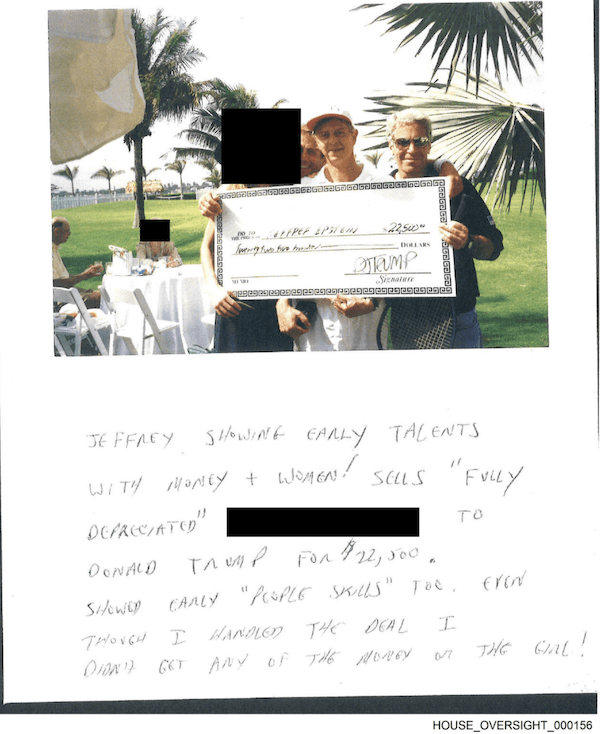 PAY TO
THE ORDER OF JEFFREY EPSTEIN $22,500⁰⁰
Twenty two five hundred DOLLARS
DJTRUMP
MEMO Signature
JEFFREY SHOWING EARLY TALENTS
WITH MONEY + WOMEN! SELLS "FULLY
DEPRECIATED" TO
DONALD TRUMP FOR $22,500.
SHOWED EARLY "PEOPLE SKILLS" TOO. EVEN
THOUGH I HANDLED THE DEAL I
DIDN'T GET ANY OF THE MONEY OR THE GIRL!
HOUSE_OVERSIGHT_000156